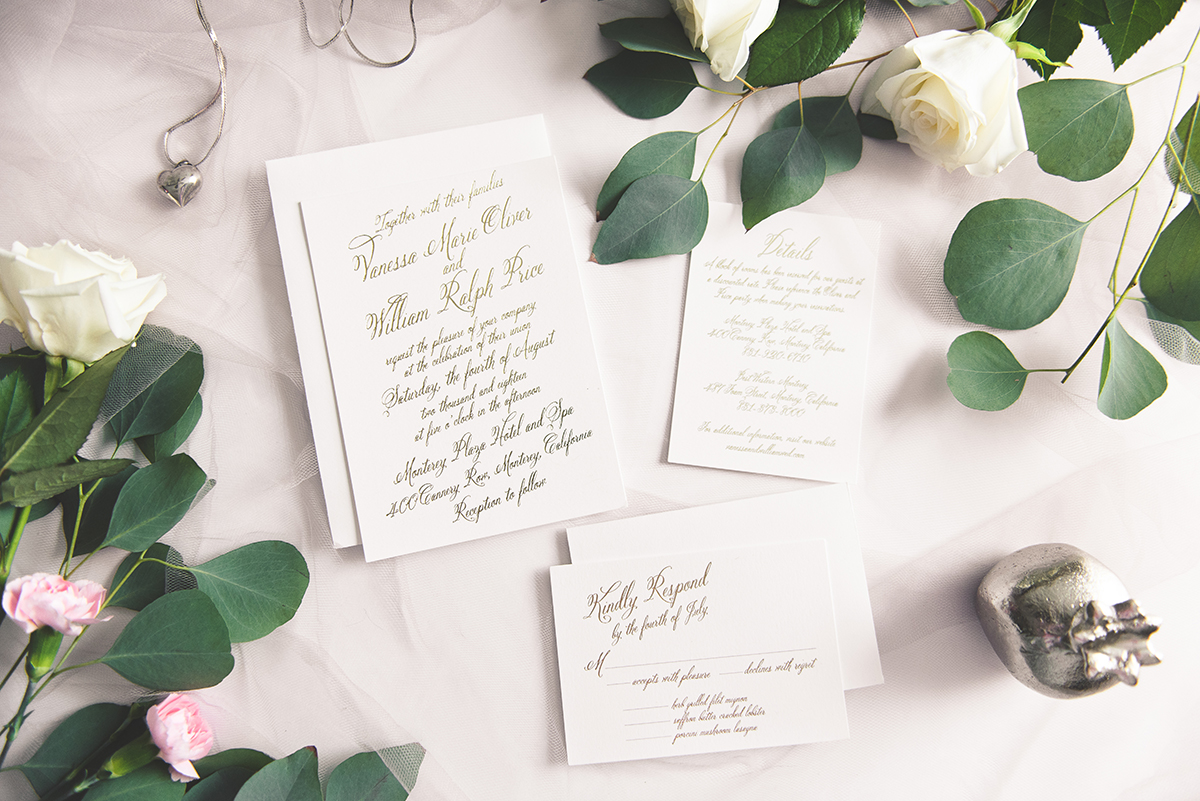 Together with their families
Vanessa Marie Oliver
and
William Ralph Price
request the pleasure of your company
at the celebration of their union
Saturday, the fourth of August
two thousand and eighteen
at five o'clock in the afternoon
Monterey Plaza Hotel and Spa
400 Cannery Row, Monterey, California
Reception to follow
Details
A block of rooms has been reserved for our guests at
a discounted rate. Please reference the Oliver and
Price party when making your reservations.
Monterey Plaza Hotel and Spa
400 Cannery Row, Monterey, California
Best Western Monterey
Street, Monterey, California
For additional information, visit our website
Kindly Respond
by the fourth of July
M
accepts with pleasure declines with regret
herb grilled filet mignon
saffron butter cracked lobster
porcini mushroom lasagna